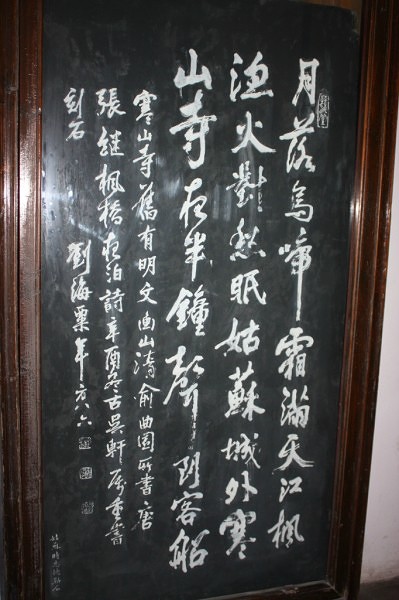 月落烏啼霜滿天江楓
漁火對愁眠姑蘇城外寒
山寺夜半鐘聲到客船
寒山寺舊有明文畫山清俞曲園所書唐
張繼楓橋夜泊詩辛酉冬古吳軒屬重書
刻石
劉海粟年方八六